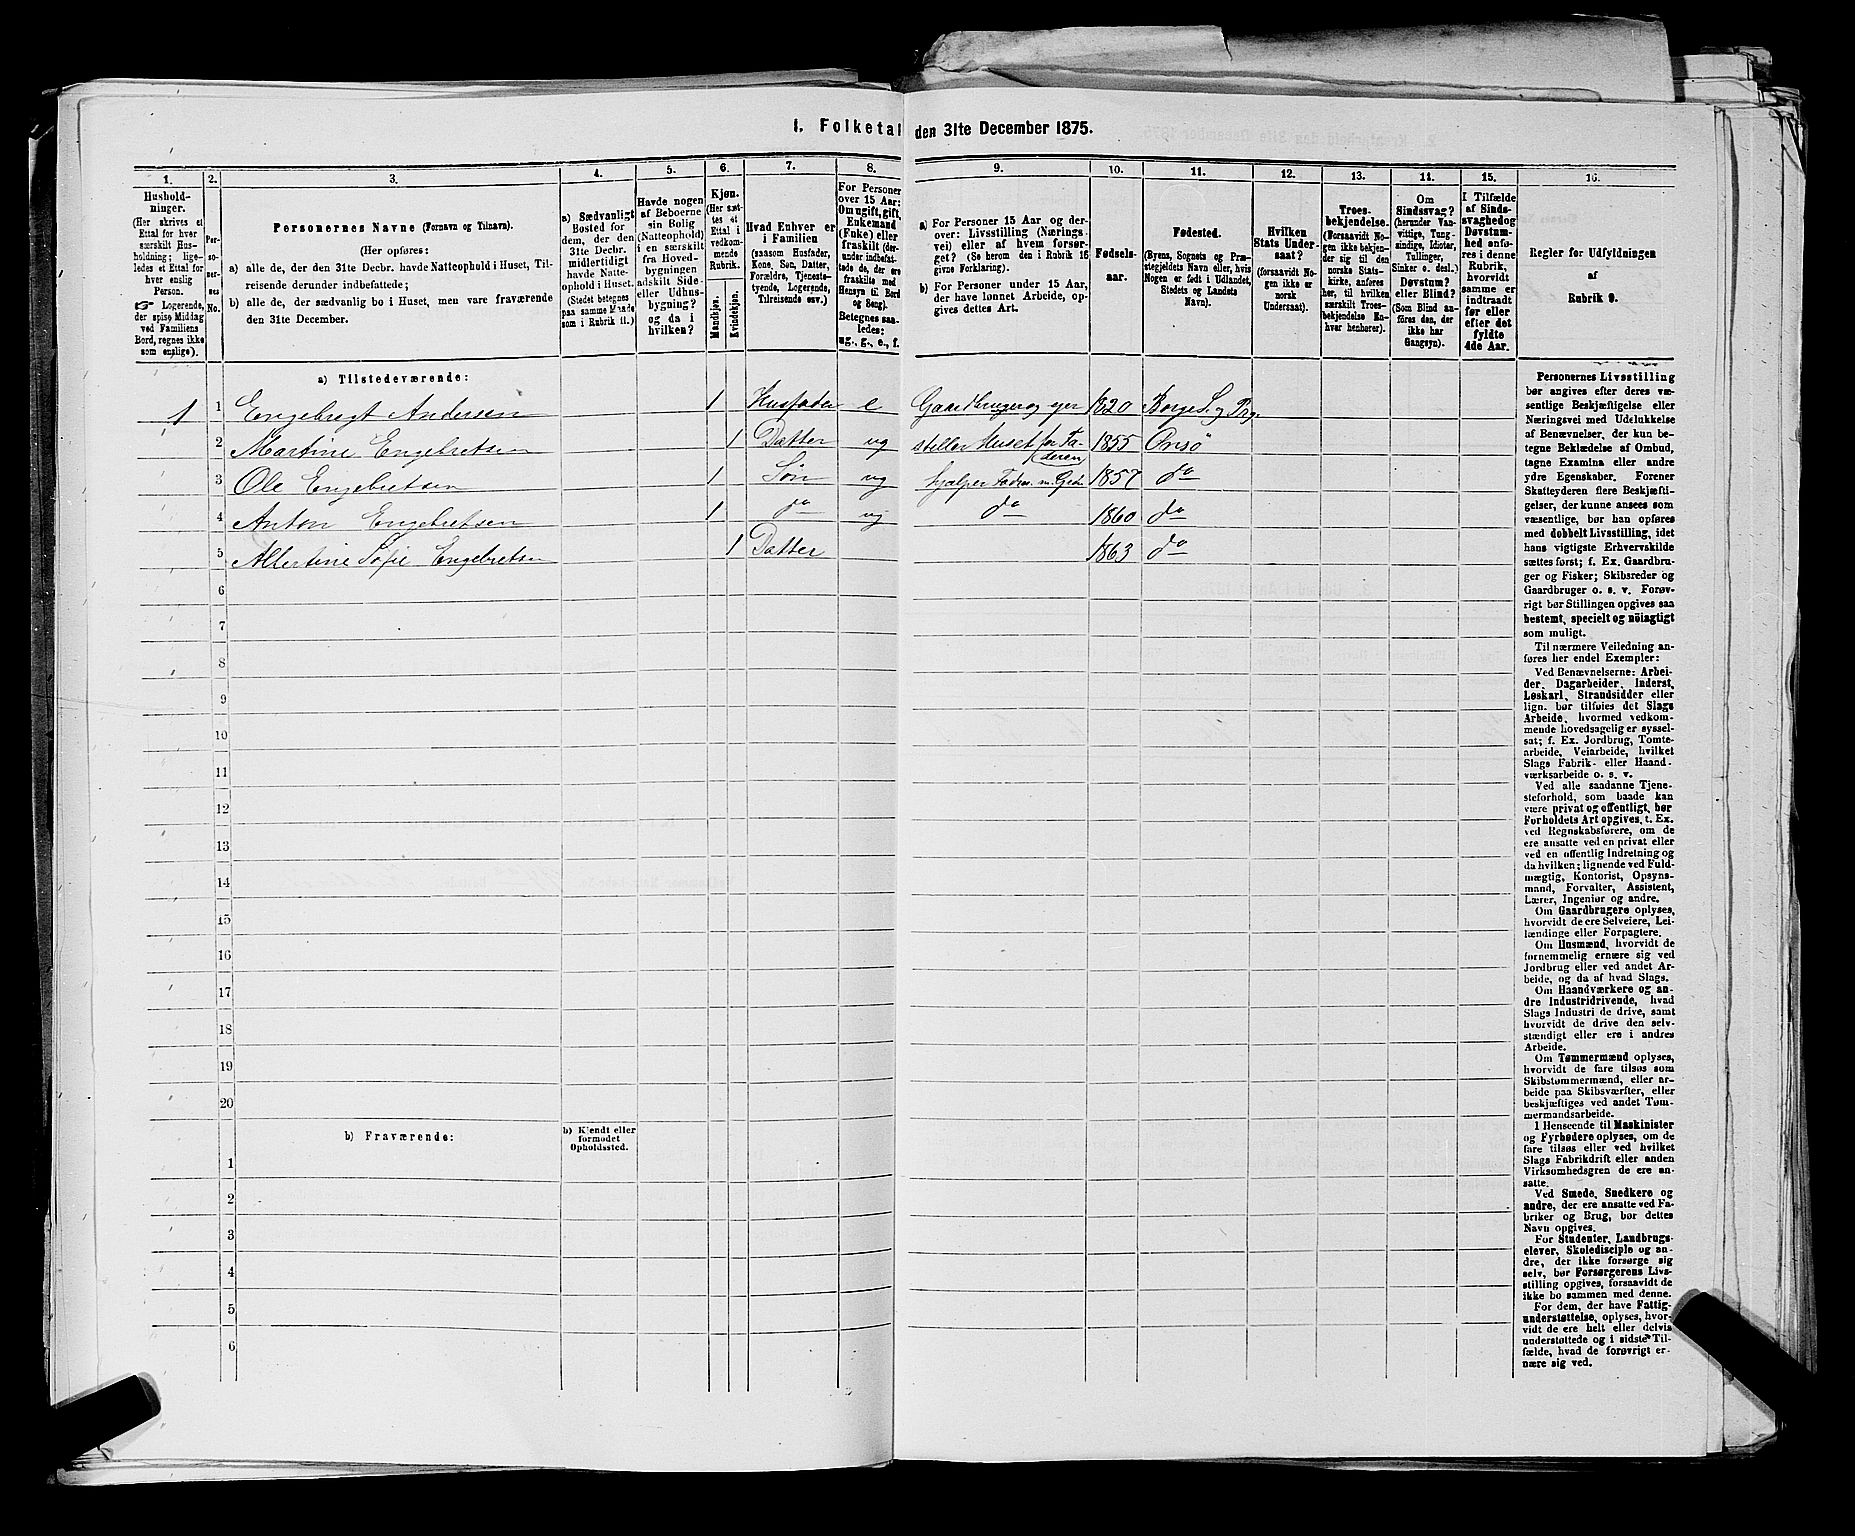 1. Folketal den 31te December 1875.
1.
Hushold-
ninger.
(Her skrives et
Ettal for hver
særskilt Hus-
holdning; lige-
ledes et Ettal for
hver enslig
Person.
☞ Logerende,
der spise Middag
ved Familiens
Bord, regnes ikke
som enslige).
2.
Per-
so-
ner-
nes
No.
3.
Personernes Navne (Fornavn og Tilnavn).
(Her opføres:
a) alle de, der den 31te Decbr. havde Natteophold i Huset, Til-
reisende derunder indbefattede;
b) alle de, der sædvanlig bo i Huset, men vare fraværende
den 31te December.
4.
a) Sædvanligt
Bosted for
dem, der den
31te Decbr.
midlertidigt
havde Natte-
ophold i Huset.
(Stedet betegnes
paa samme Maade
som i Rubrik 11.)
5.
Havde nogen
af Beboerne
sin Bolig
(Natteophold)
i en særskilt
fra Hoved-
bygningen
adskilt Side-
eller Udhus-
bygning?
og da i
hvilken?
6.
Kjøn.
(Her sæt-
tes et
Ettal i
vedkom-
mende
Rubrik.
Mandkjøn.
Kvindekjøn.
7.
Hvad Enhver er
i Familien
(saasom Husfader,
Kone, Søn, Datter,
Forældre, Tjeneste-
tyende, Logerende,
Tilreisende osv.)
8.
For Personer
over 15 Aar:
Om ugift, gift,
Enkemand
(Enke) eller
fraskilt (der-
under indbefat-
tede de, der ere
fraskilte med
Hensyn til Bord
og Seng).
Betegnes saa-
ledes:
ug., g., e., f.
9.
a) For Personer 15 Aar og der-
over: Livsstilling (Nærings-
vei) eller af hvem forsør-
get? (Se herom den i Rubrik 16
givne Forklaring).
b) For Personer under 15 Aar,
der have lønnet Arbeide, op-
gives dettes Art.
10.
Fødsels-
aar.
11.
Fødested.
(Byens, Sognets og Præ-
stegjeldets Navn eller, hvis
Nogen er født i Udlandet,
Stedets og Landets
Navn).
12.
Hvilken
Stats Under-
saat?
(forsaavidt No-
gen ikke er
norsk
Undersaat).
13.
Troes-
bekjendelse.
(Forsaavidt No-
gen ikke bekjen-
der sig til den
norske Stats-
kirke, anføres
her, til hvilken
særskilt Troes-
bekjendelse En-
hver henhører).
14.
Om
Sindssvag?
(herunder Van-
vittige, Tung-
sindige, Idioter,
Tullinger,
Sinker o. desl.)
Døvstum?
eller Blind?
(Som Blind an-
føres den, der
ikke har
Gangsyn).
15.
I Tilfælde
af Sinds-
svaghed og
Døvstum-
hed anfø-
res i denne
Rubrik,
hvorvidt
samme er
indtraadt
før eller
efter det
fyldte
4de Aar.
16.
Regler for Udfyldningen
af
Rubrik 9.
a) Tilstedeværende:
1 1 Engebregt Andersen 1 Husfader e Gaardbruger og ejer 1820 Borge S. og Prg.
2 Martine Engebretsen 1 Datter ug steller Huset for Fa-
deren 1855 Onsö
3 Ole Engebretsen 1 Søn ug hjelper Fadr. m. Grdn 1857 do
4 Anton Engebretsen 1 do ug do 1860 do
5 Albertine Sofie Engebretsen 1 Datter 1863 do
6
7
8
9
10
11
12
13
14
15
16
17
18
19
20
b) Fraværende:
b) Kjendt eller
formodet
Opholdssted.
1
2
3
4
5
6
Personernes Livsstilling
bør angives efter deres væ-
sentlige Beskjæftigelse eller
Næringsvei med Udelukkelse
af Benævnelser, der kun be-
tegne Beklædelse af Ombud,
tagne Examina eller andre
ydre Egenskaber. Forener
Skatteyderen flere Beskjæfti-
gelser, der kunne ansees som
væsentlige, bør han opføres
med dobbelt Livsstilling, idet
hans vigtigste Erhvervskilde
sættes først; f. Ex. Gaardbru-
ger og Fisker; Skibsreder og
Gaardbruger o. s. v. Forøv-
rigt bør Stillingen opgives saa
bestemt, specielt og nöiagtigt
som muligt.
Til nærmere Veiledning an-
føres her endel Exempler:
Ved Benævnelserne: Arbei-
der, Dagarbeider, Inderst,
Løskarl, Strandsidder eller
lign. bør tilføies det Slags
Arbeide, hvormed vedkom-
mende hovedsagelig er syssel-
sat; f. Ex. Jordbrug, Tomte-
arbeide, Veiarbeide, hvilket
Slags Fabrik- eller Haand-
værksarbeide o. s. v.
Ved alle saadanne Tjene-
steforhold, som baade kan
være privat og offentligt, bør
Forholdets Art opgives, t. Ex.
ved Regnskabsførere, om de
ere ansatte ved en privat eller
ved en offentlig Indretning og
da hvilken; lignende ved Fuld-
mægtig, Kontorist, Opsyns-
mand, Forvalter, Assistent,
Lærer, Ingeniør og andre.
Om Gaardbrugere oplyses,
hvorvidt de ere Selveiere, Lei-
lændinge eller Forpagtere.
Om Husmænd, hvorvidt de
fornemmelig ernære sig ved
Jordbrug eller ved andet Ar-
beide, og da af hvad Slags.
Om Haandværkere og an-
dre Industridrivende, hvad
Slags Industri de drive, samt
hvorvidt de drive den selv-
stændigt eller ere i andres
Arbeide.
Om Tømmermænd oplyses,
hvorvidt de fare tilsøs som
Skibstømmermænd, eller ar-
beide paa Skibsværfter, eller
beskjæftiges ved andet Tøm-
mermandsarbeide.
I Henseende til Maskinister
og Fyrbødere oplyses, om de
fare tilsøs eller ved hvilket
Slags Fabrikdrift eller anden
Virksomhedsgren de ere an-
satte.
Ved Smede, Snedkere og
andre, der ere ansatte ved Fa-
briker og Brug, bør dettes
Navn opgives.
For Studenter, Landbrugs-
elever, Skoledisciple og an-
dre, der ikke forsørge sig
selv, bør Forsørgerens Livs-
stilling opgives, forsaavidt de
ikke bo sammen med denne.
For dem, der have Fattig-
understøttelse, oplyses, hvor-
vidt de ere helt eller delvis
understøttede og i sidste Til-
fælde, hvad de forøvrigt er-
nære sig ved.